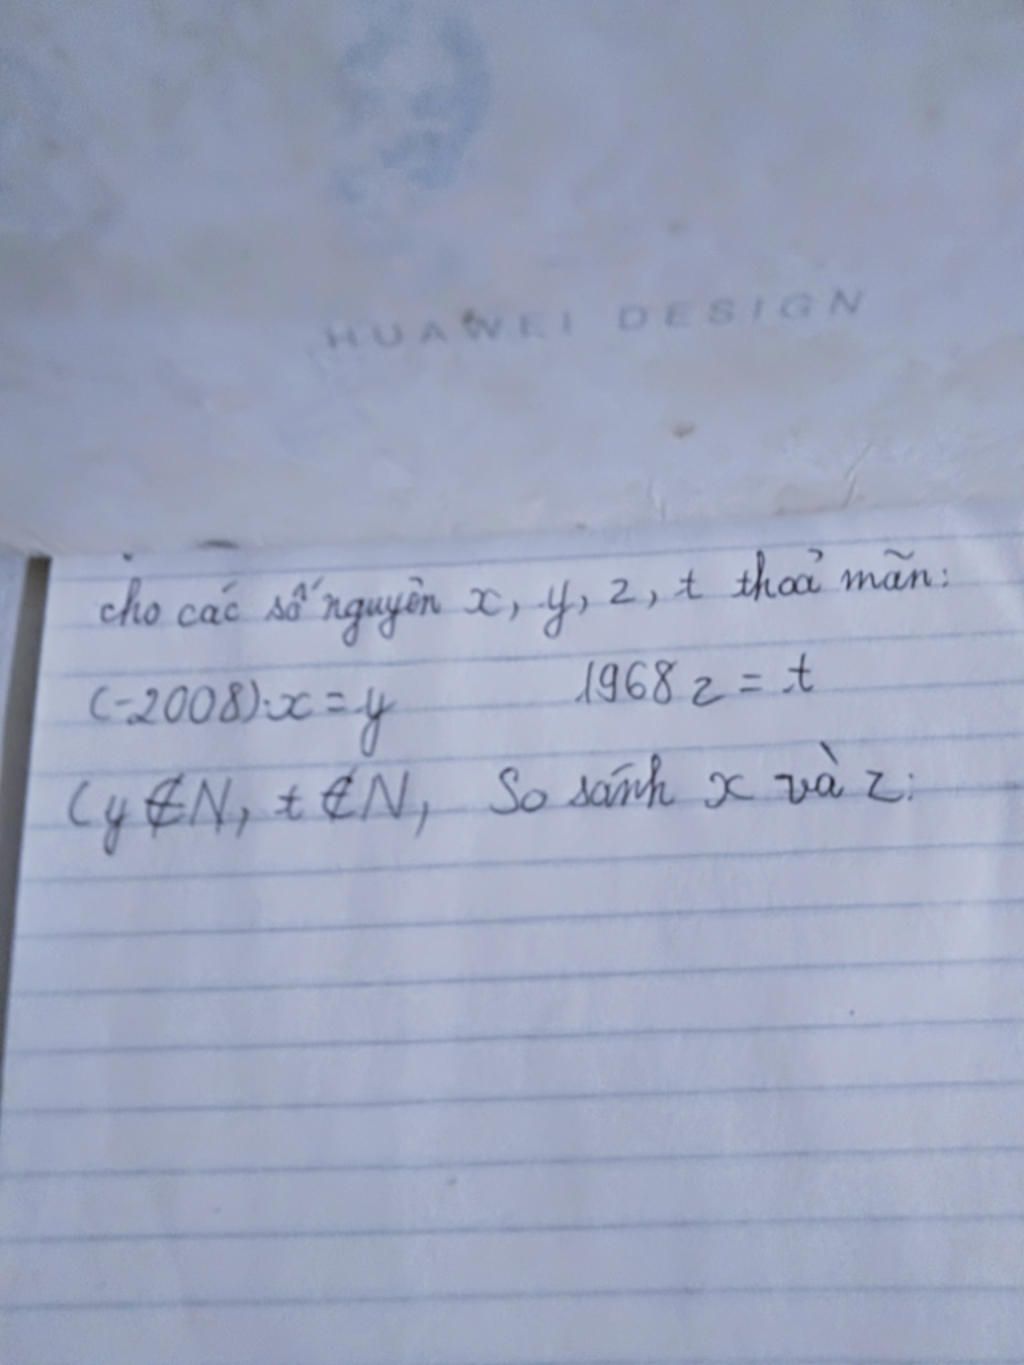 HUAWEI DESIGN
cho các số nguyên x, y, z, t thoả mãn:
(-2008).x = y 1968 z = t
(y ∉ N, t ∉ N, So sánh x và z: